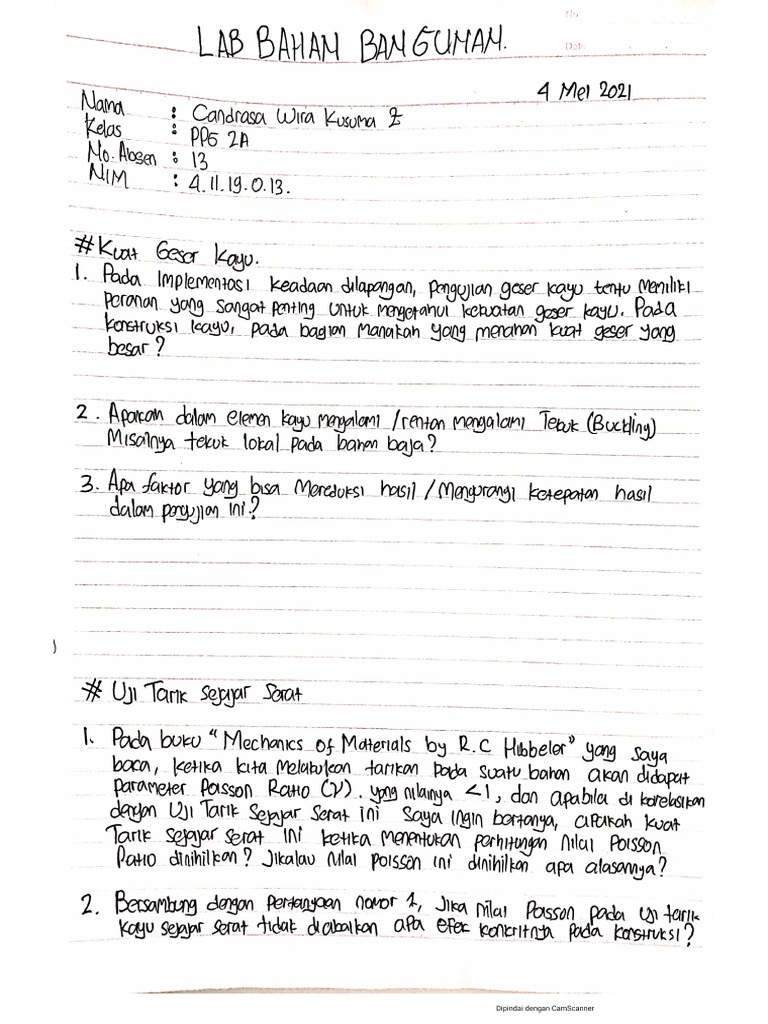 No
Date
LAB BAHAN BANGUNAN.
4 Mei 2021
Nama : Candrasa Wira Kusuma Z
Kelas : PPG 2A
No. Absen : 13
NIM : 4.11.19.0.13.
# Kuat Geser Kayu.
1. Pada Implementasi keadaan dilapangan, pengujian geser kayu tentu memiliki
peranan yang sangat penting untuk mengetahui kekuatan geser kayu. Pada
konstruksi kayu, pada bagian manakah yang menahan kuat geser yang
besar?
2. Apakah dalam elemen kayu mengalami /rentan mengalami Tekuk (Buckling)
Misalnya tekuk lokal pada bahan baja?
3. Apa faktor yang bisa mereduksi hasil / Mengurangi ketepatan hasil
dalam pengujian ini?
# Uji Tarik Sejajar Serat
1. Pada buku "Mechanics of Materials by R.C Hibbeler" yang saya
baca, ketika kita melakukan tarikan pada suatu bahan akan didapat
parameter Poisson Ratio (γ). yang nilainya <1, dan apabila di korelasikan
dengan Uji Tarik Sejajar Serat ini saya ingin bertanya, apakah kuat
Tarik sejajar serat ini ketika menentukan perhitungan nilai Poisson
Ratio dinihilkan? Jikalau nilai poisson ini dinihilkan apa alasannya?
2. Bersambung dengan pertanyaan nomor 1, Jika nilai Poisson pada uji tarik
kayu sejajar serat tidak diabaikan apa efek konkritnya pada konstruksi?
Dipindai dengan CamScanner